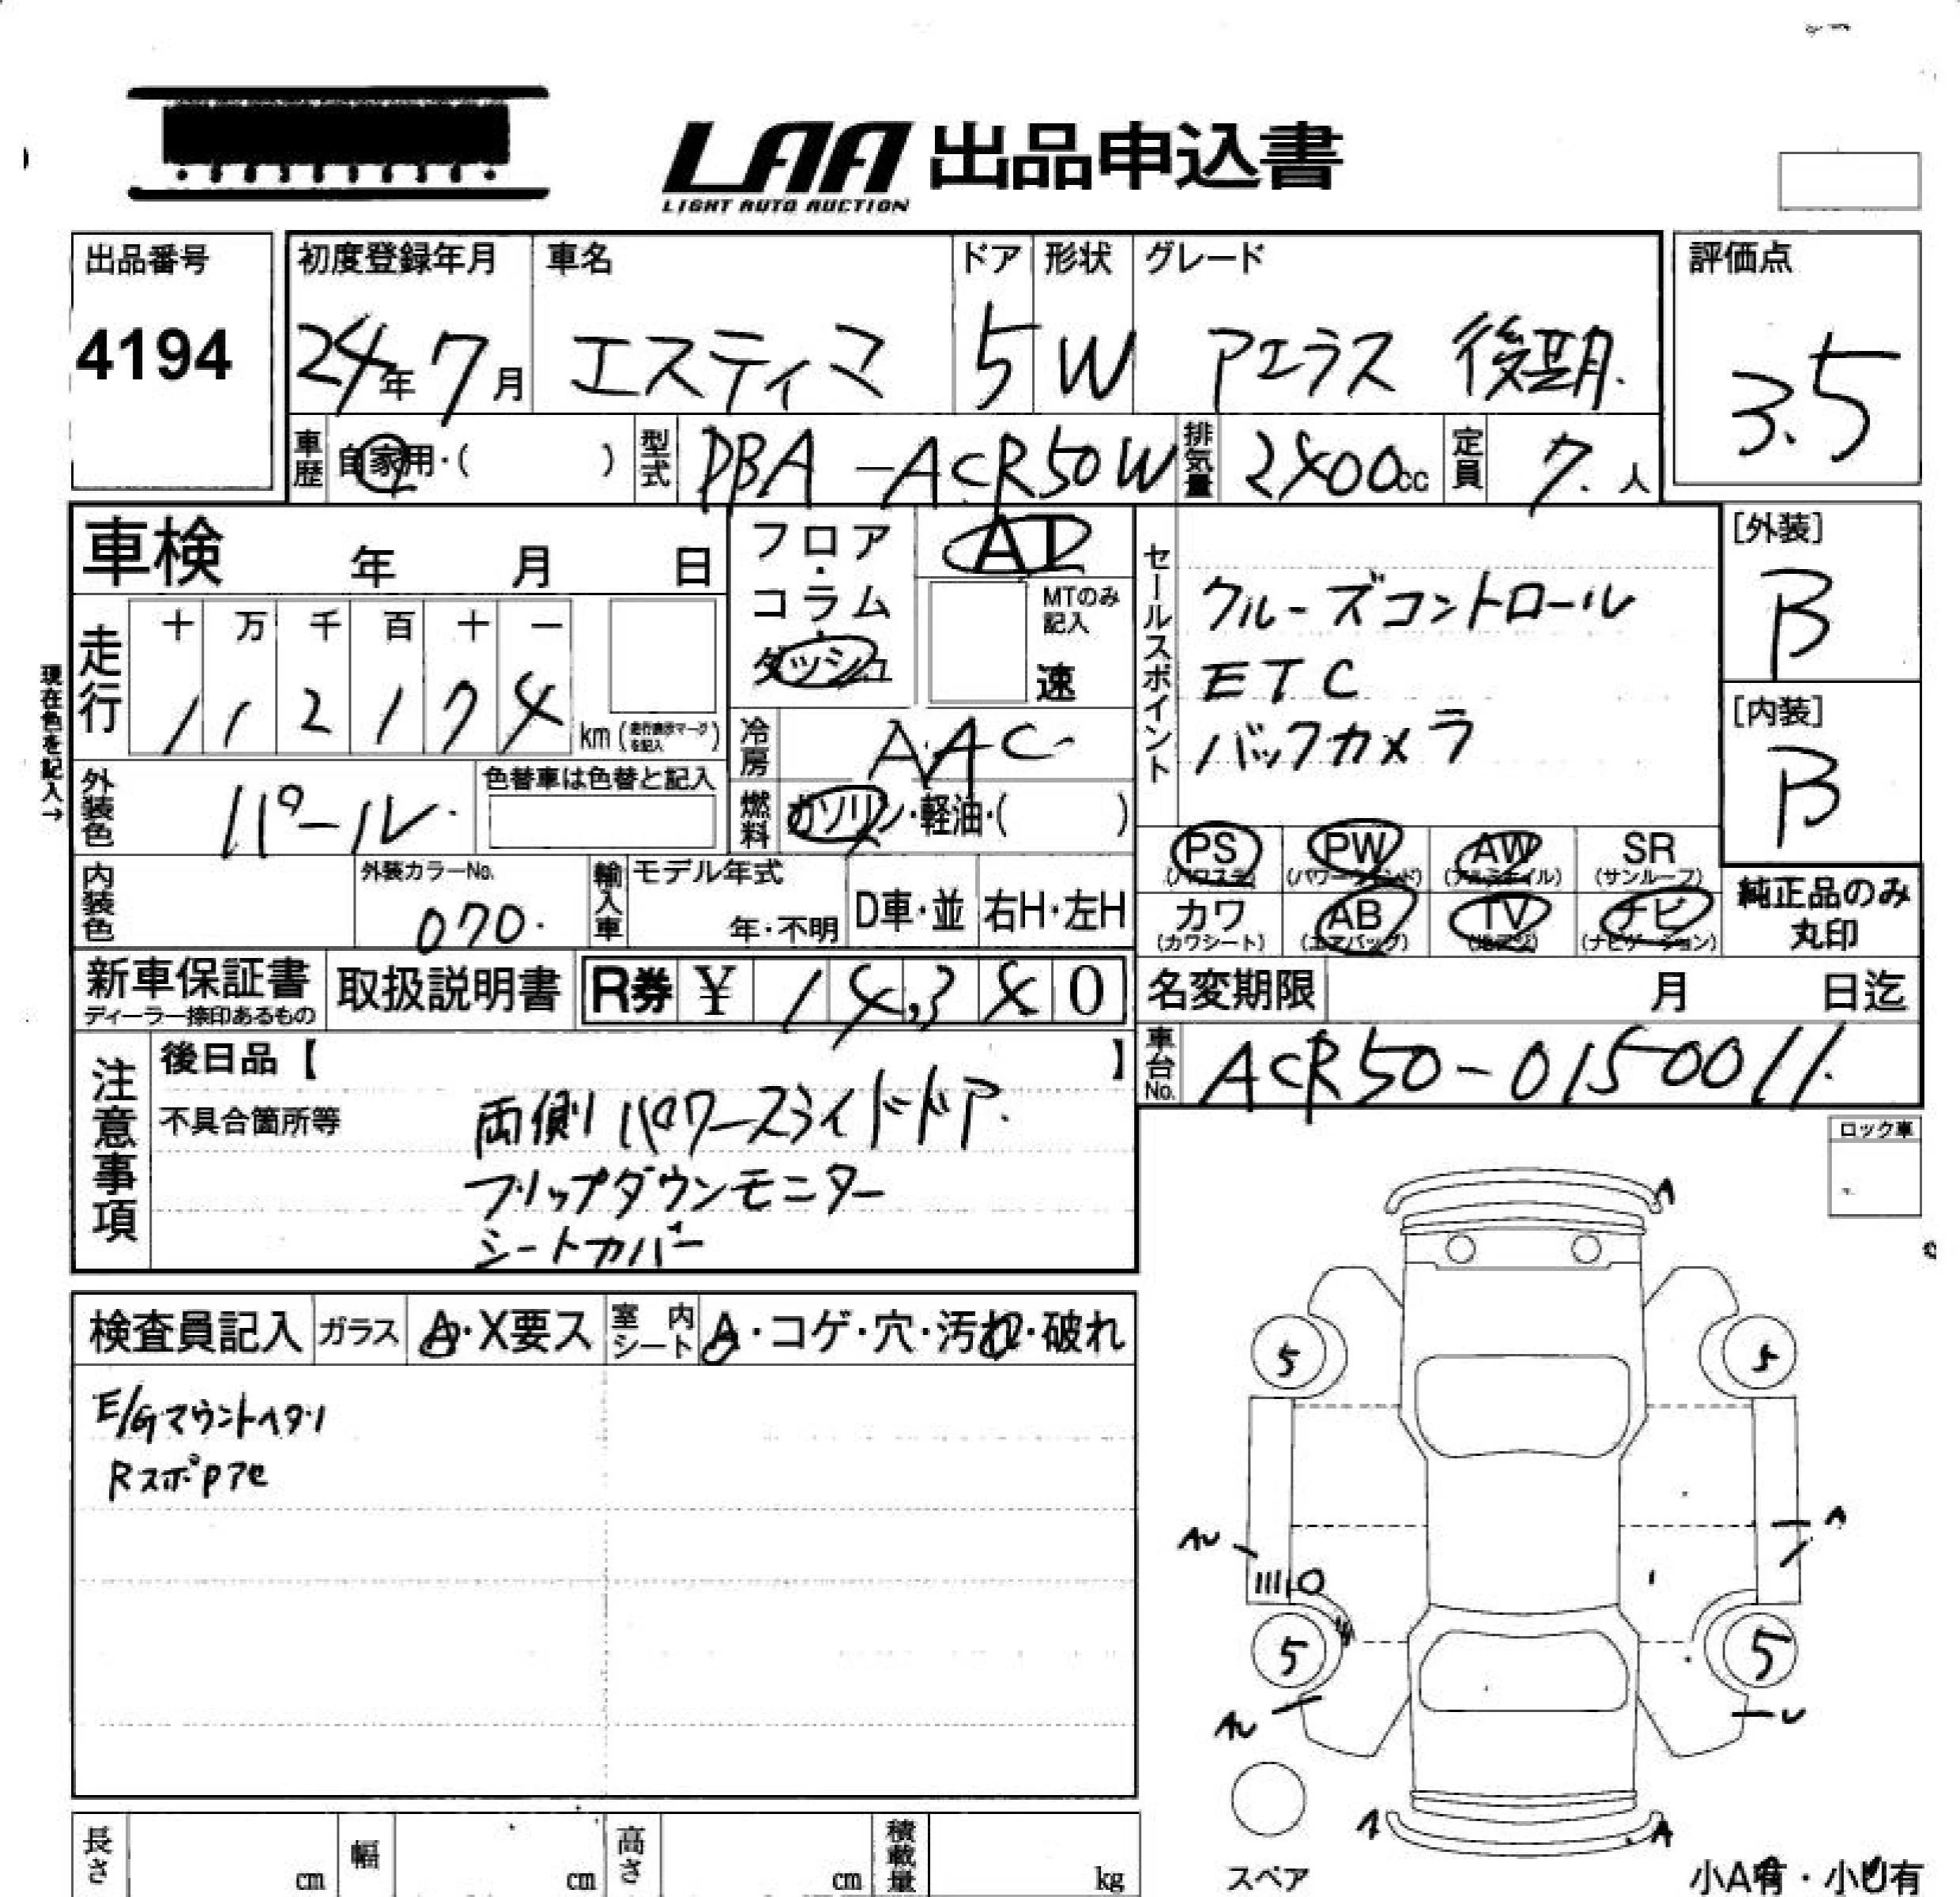 LAA 出品申込書
LIGHT AUTO AUCTION
出品番号
4194
初度登録年月
24年 7月
車名
エスティマ
ドア
5
形状
W
グレード
アエラス 後期.
評価点
3.5
車歴
自家用・( )
型式
DBA-ACR50W
排気量
2400cc
定員
7.人
車検 年 月 日
フロア・コラム・ダッシュ
AT
MTのみ記入
速
セールスポイント
クルーズコントロール
ETC
バックカメラ
[外装]
B
[内装]
B
現在色を記入→
走行
十 万 千 百 十 一
1 1 2 1 7 4 km (走行表示マークを記入)
冷房
AAC
燃料
ガソリン・軽油・( )
外装色
パール.
色替車は色替と記入
内装色
外装カラーNo.
070.
輸入車
モデル年式
年・不明
D車・並
右H・左H
PS (パワステ)
PW (パワーウィンド)
AW (アルミホイル)
SR (サンルーフ)
カワ (カワシート)
AB (エアバッグ)
TV (地デジ)
ナビ (ナビゲーション)
純正品のみ
丸印
新車保証書
ディーラー捺印あるもの
取扱説明書
R券 ¥ 14,340
名変期限 月 日迄
車台No.
ACR50-0150011.
注意事項
後日品【 】
不具合箇所等
両側パワースライドドア.
フリップダウンモニター
シートカバー
ロック車
検査員記入
ガラス
A・X要ス
室内シート
A・コゲ・穴・汚れ・破れ
E/Gマウントヘタリ
RスポPアセ
A
5
5
AU
A
5
5
AU
U
A
A
スペア
小A有・小U有
長さ cm
幅 cm
高さ cm
積載量 kg